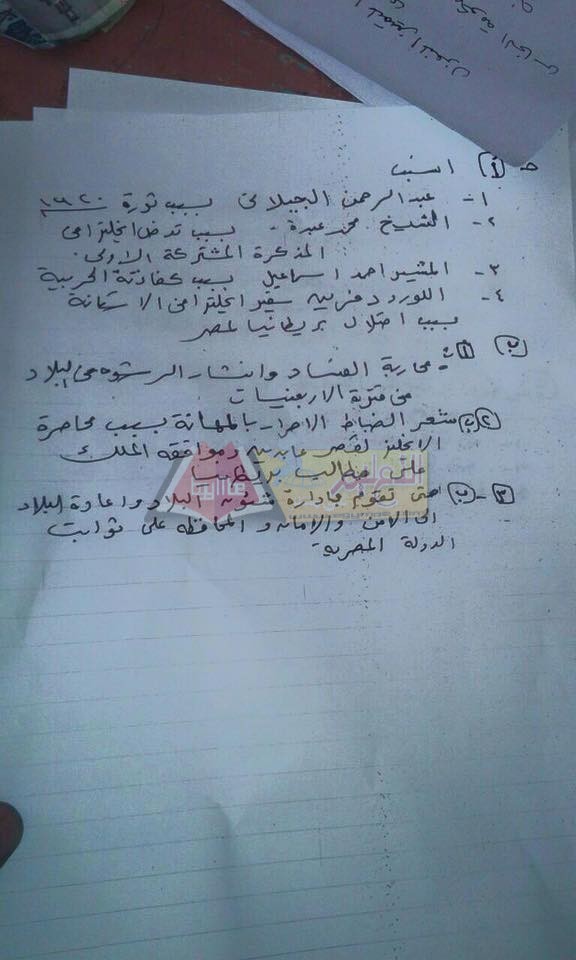 أ انسب
١- عبد الرحمن الجيلانى بسبب ثورة ١٩٢٠
٢- الشيخ محمد عبدة - بسبب تدخل انجلترا فى
المذكرة المشتركة الاولى.
٣- المشير احمد اسماعيل بسبب كفائتة الحربية
٤- اللورد دفرين سفير انجلترا فى الاستانة
بسبب احتلال بريطانيا لمصر
ب أ: محاربة الفساد وانتشار الرشوه فى البلاد
فى فترة الاربعنيات
٢ ب شعر الضباط الاحرار بالمهانة بسبب محاصرة
الانجليز لقصر عابدين وموافقه الملك
على مطالب بريطانيا
٣- ب حتى تقوم بادارة شئون البلاد واعادة البلاد
الى الامن والامان والمحافظه على ثوابت
الدولة المصرية